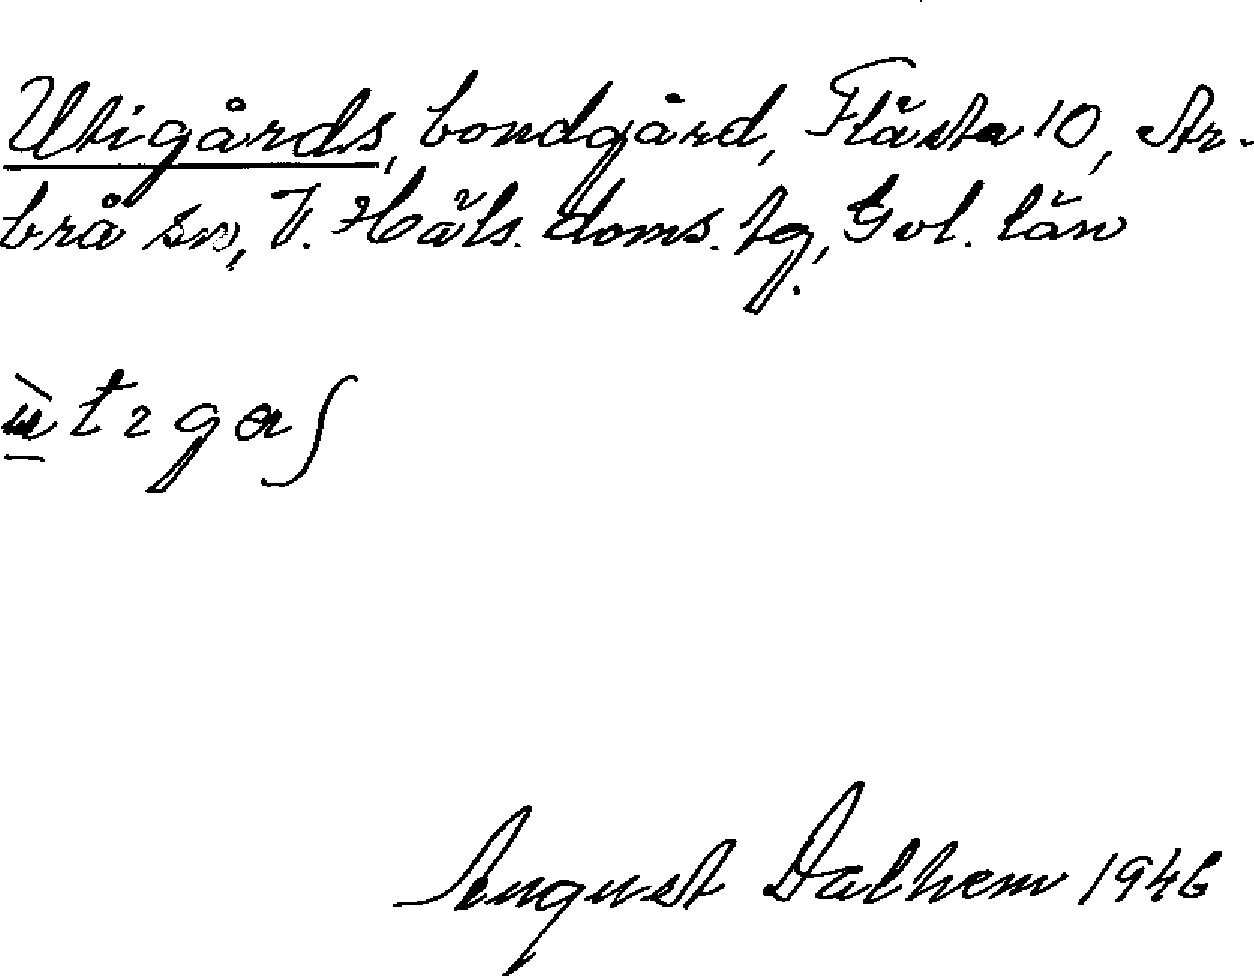 Utigårds, bondgård, Flästa 10, Ar-
brå sn, V. Häls. doms. tg, Gvl. län
ù̱ t ɿ g a ʃ
August Dalhem 1946